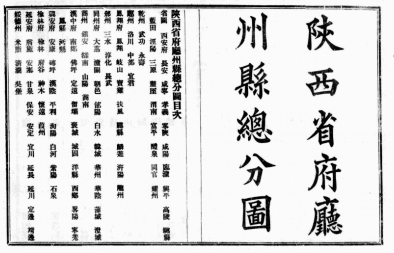 陝西省府廳
州縣總分圖
陝西省府廳州縣總分圖目次
省圖 西安府 長安 咸寧 孝義 寧陝 咸陽 臨潼 興平 高陵 鄠縣
藍田 涇陽 三原 盩厔 渭南 富平 醴泉 同官 耀州
乾州 武功 永壽
鄜州 洛川 中部 宜君
鳳翔府 鳳翔 岐山 寶雞 扶風 郿縣 麟遊 汧陽 隴州
邠州 三水 淳化 長武
同州府 大荔 潼關 朝邑 郃陽 白水 韓城 華州 華陰 蒲城 澄城
商州 鎮安 雒南 山陽 商南
漢中府 南鄭 佛坪 定遠 留壩 褒城 城固 洋縣 西鄉 略陽 寧羌
鳳縣 沔縣
興安府 安康 磚坪 漢陰 平利 洵陽 白河 紫陽 石泉
榆林府 榆林 府谷 神木 懷遠 葭州
延安府 膚施 安塞 甘泉 保安 安定 宜川 延長 延川 定邊 靖邊
綏德州 米脂 清澗 吳堡